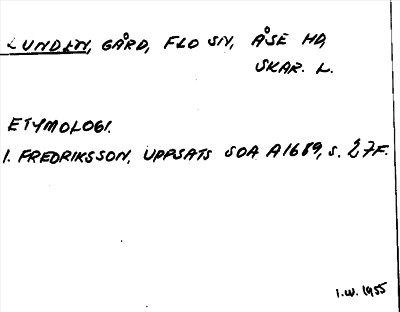 LUNDEN, GÅRD, FLO SN, ÅSE HD,
SKAR. L.
ETYMOLOGI.
I. FREDRIKSSON, UPPSATS SOA A1689, S. 27F.
I.W. 1955